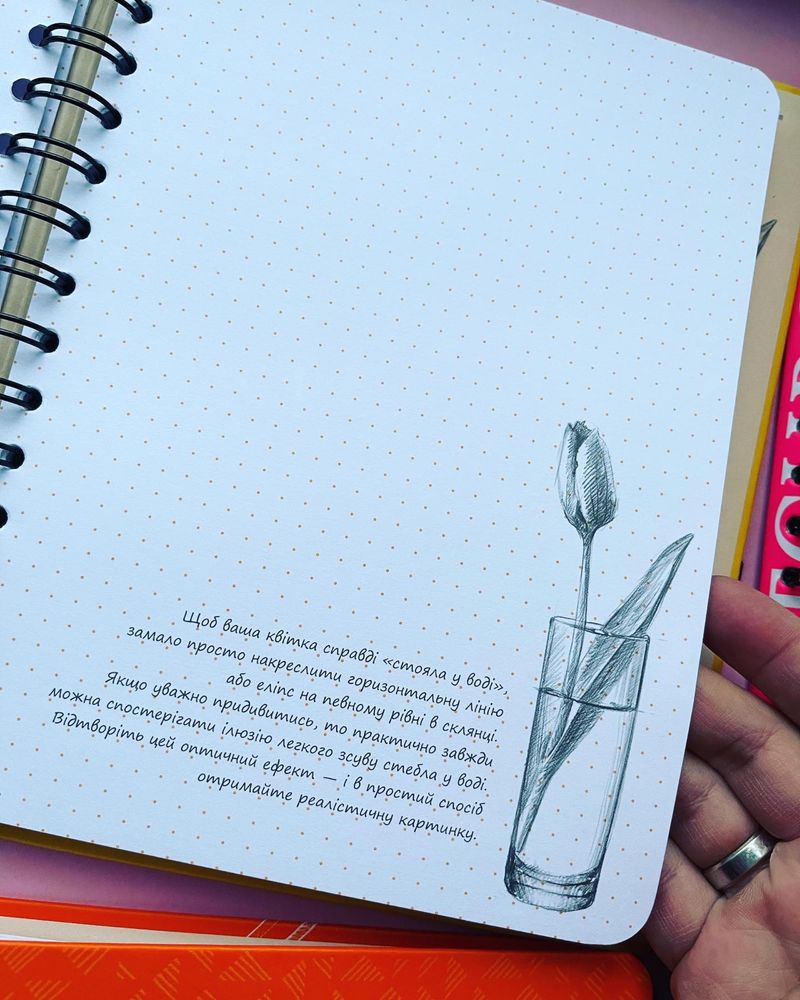 Щоб ваша квітка справді «стояла у воді»,
замало просто накреслити горизонтальну лінію
або еліпс на певному рівні в склянці.
Якщо уважно придивитись, то практично завжди
можна спостерігати ілюзію легкого зсуву стебла у воді.
Відтворіть цей оптичний ефект — і в простий спосіб
отримайте реалістичну картинку.